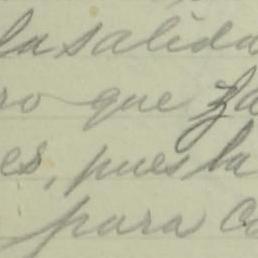 la salida
ro que
es, pues la
para